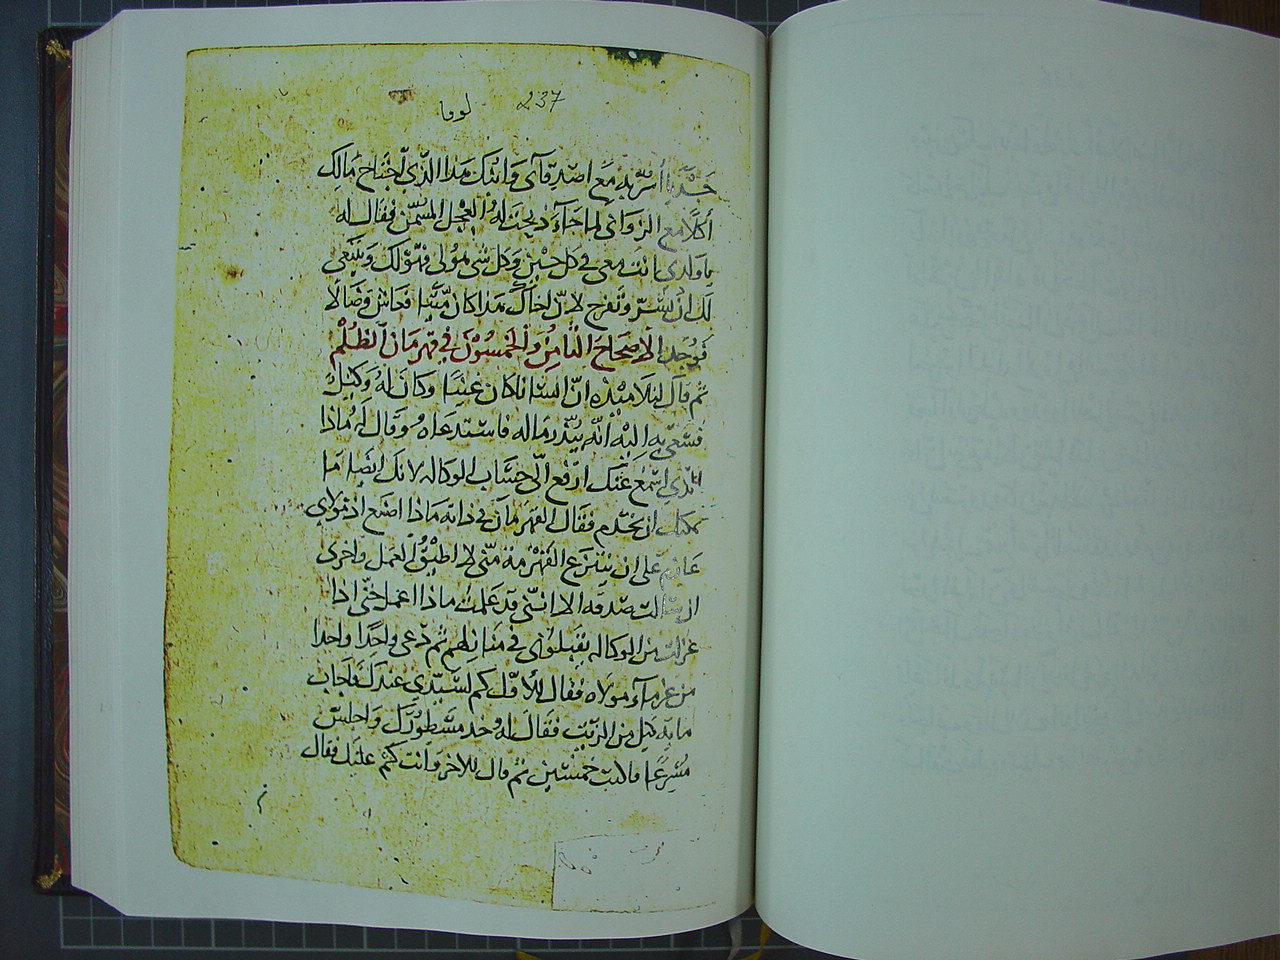 لوقا 237
جَدْيًا أُسَرُّ به مَع اصْدِقآى وَابنُكَ هَذا الَّذِي اجْتَاح مَالكَ
أكَلًا مع الزوَانى لما جَآءَ ذبحْتَ لهُ العِجْل المُسَمَّن فقال له
يا وَلدى انتَ معى فى كل حِيْنٍ وَكل شى هوُ لى فهُوَ لكَ وَينْبَغى
لكَ انْ تُسَرّ وتَفرح لانّ اخاكَ هَذا كان مَيّتًا فعَاش وَضالًا
فوُجدَ الاصْحَاحُ الثّامِنُ وَالخَمسُوْنَ فى قهرمَان الظُلْم
ثم قالَ لتلامِيْذِه انّ انسَانا كان غنِيًّا وكانَ لهُ وَكيْلٌ
فسُعِى بهِ اليْهِ انَّه يُبَذّر مَاله فاسْتدعَاهُ وَقال لهُ مَاذا
الّذي اسْمَعُ عَنْكَ ارْفع الىّ حِسَابَ الوكاله لانكَ ايضًا مَا
يمكنك ان تخْدم فقال القهرَمانُ فى ذاته مَاذا اصْنع اذ مَوْلاى
عَازم على ان ينتزع القهْرَمة منّى لا اطيْقُ العمل وَاخزى
ان سَالت صَدقه الا اننّى قد عَلمتُ ماذا اعمل حَتّى اذا
عُزلت من الوكاله يقبلوُنى فى منازلهم ثم دَعى واحِدًا واحدا
من غرمآء مَوْلاه فقال للاوّل كم لسَيّدي عندكَ فاجابَ
مايه كيْل من الزيْت فقَالَ له خذ مسْطورَكَ وَاجلسْ
مُسْرعًا فاكتب خمسْين ثم قال للاخر وَانت كم عليْك فقال